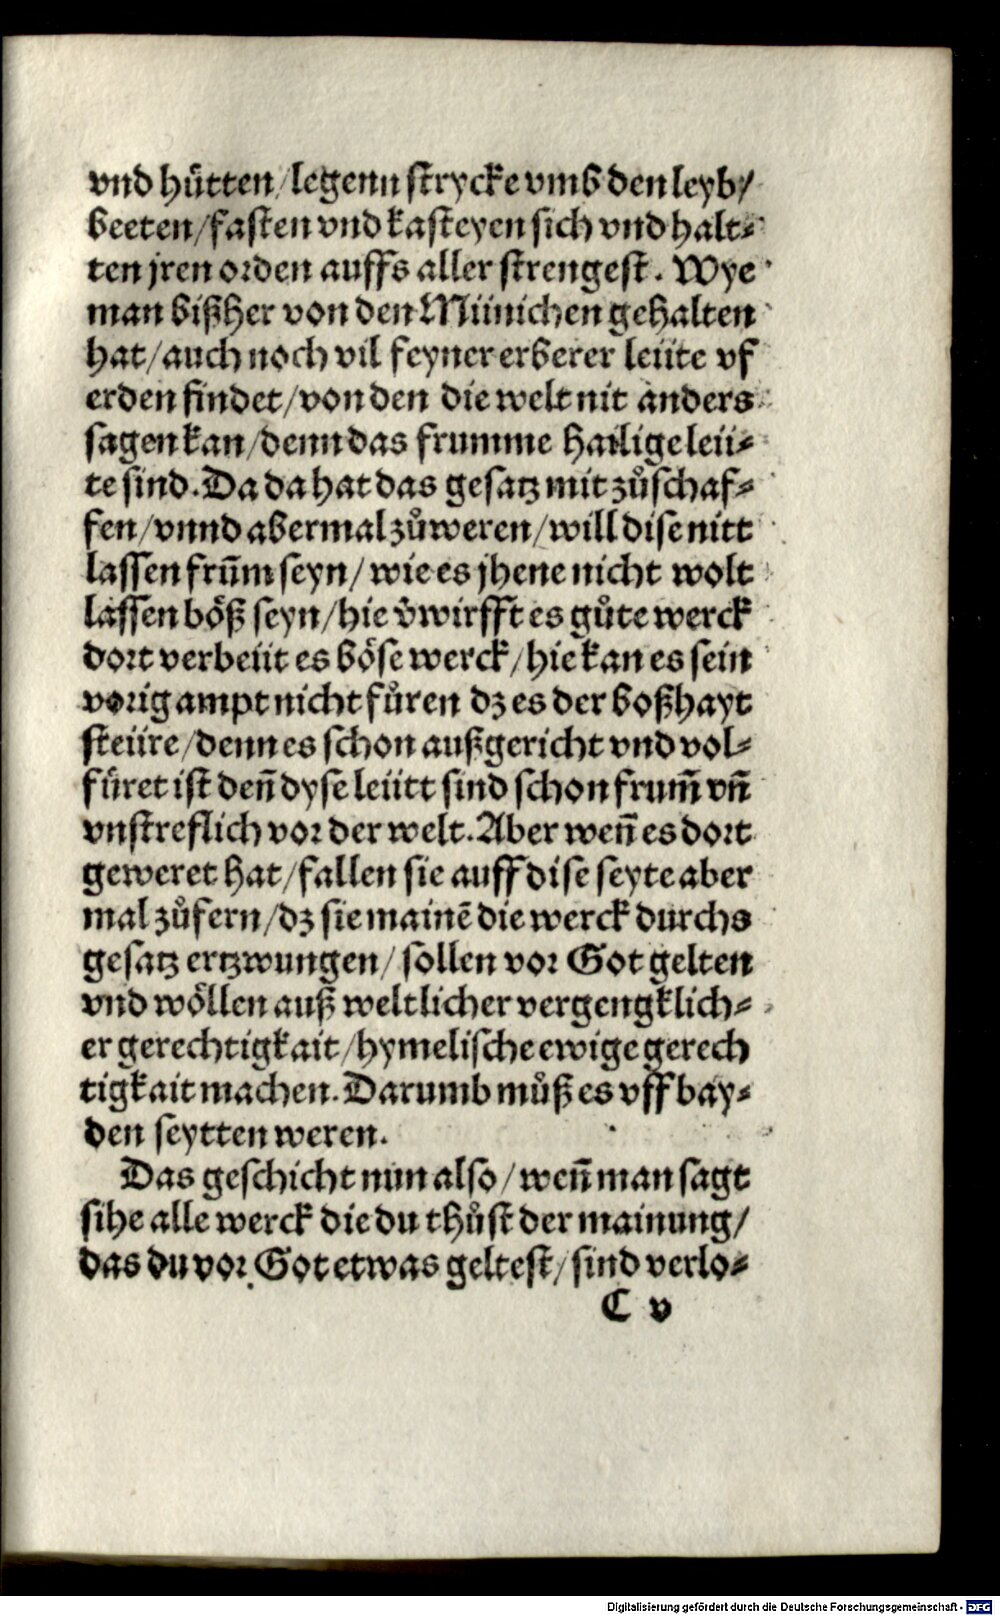 vnd hütten / legenn strycke vmb den leyb /
beeten / fasten vnd kasteyen sich vnd halt⸗
ten jren orden auffs aller strengest. Wye
man bißher von den Münichen gehalten
hat / auch noch vil feyner erberer leüte vf
erden findet / von den die welt nit anders
sagen kan / denn das frumme hailige leü⸗
te sind. Da da hat das gesatz mit zůschaf⸗
fen / vnnd abermal zůweren / will dise nitt
lassen frūm seyn / wie es jhene nicht wolt
lassen böß seyn / hie v̄wirfft es gůte werck
dort verbeüt es böse werck / hie kan es sein
vorig ampt nicht fůren dz es der boßhayt
steüre / denn es schon außgericht vnd vol⸗
füret ist deñ dyse leütt sind schon frum̄ vñ
vnstreflich vor der welt. Aber weñ es dort
geweret hat / fallen sie auff dise seyte aber
mal zůfern / dz sie mainē die werck durchs
gesatz ertzwungen / sollen vor Got gelten
vnd wöllen auß weltlicher vergengklich⸗
er gerechtigkait / hymelische ewige gerech
tigkait machen. Darumb můß es vff bay⸗
den seytten weren.
Das geschicht nun also / weñ man sagt
sihe alle werck die du thůst der mainung /
das du vor Got etwas geltest / sind verlo⸗
C v
Digitalisierung gefördert durch die Deutsche Forschungsgemeinschaft - DFG